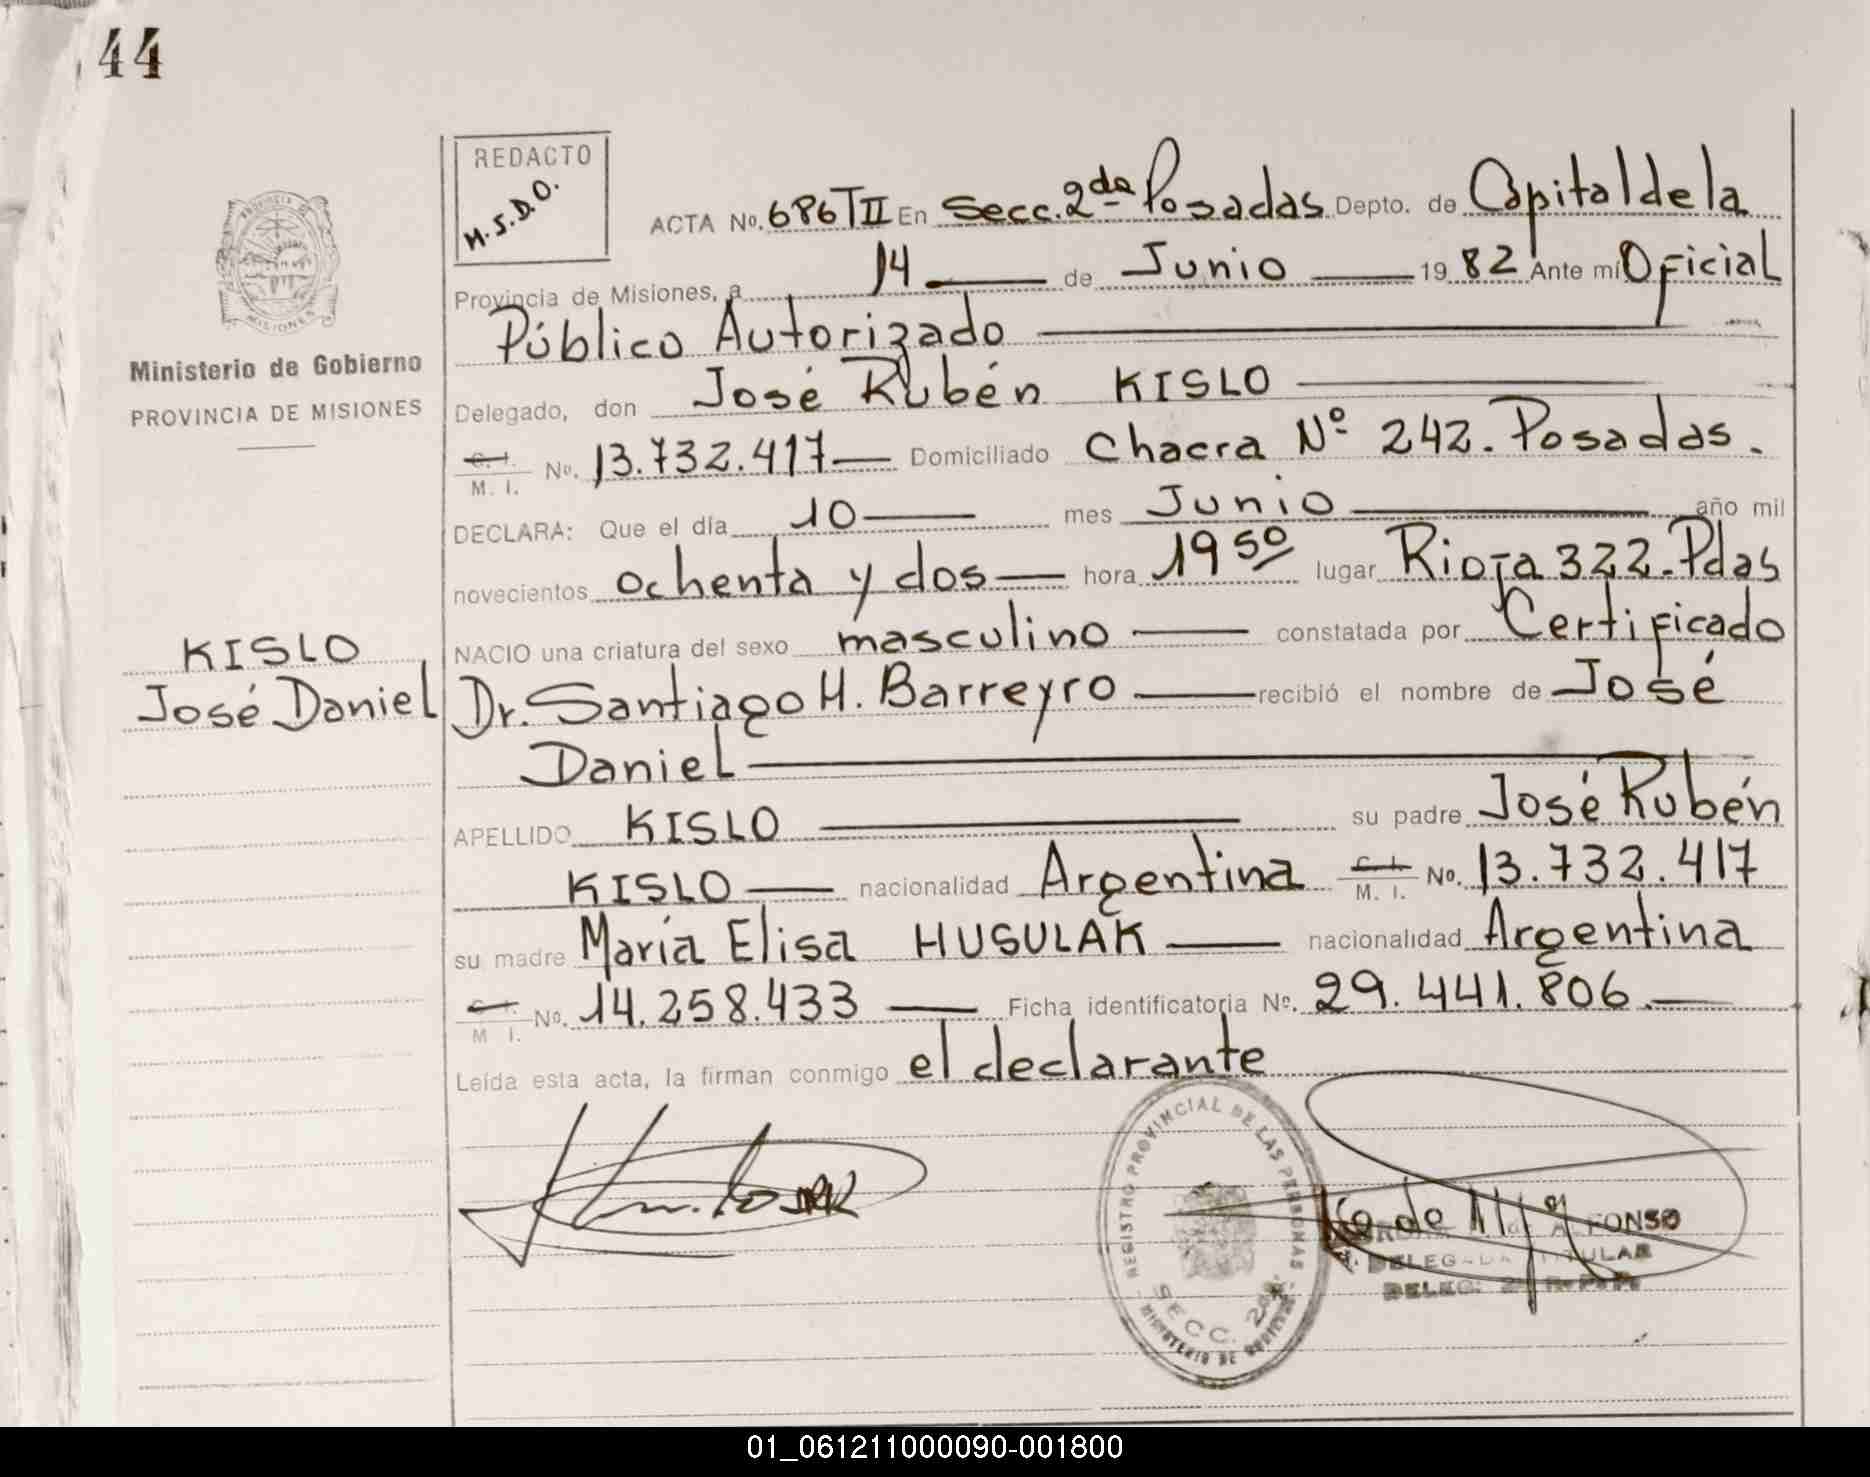 44
REDACTO
M.S.D.O.
PROVINCIA DE
MISIONES
Ministerio de Gobierno
PROVINCIA DE MISIONES
ACTA No. 686 T II En Secc. 2da Posadas Depto. de Capital de la
Provincia de Misiones, a 14 de Junio 19 82 Ante mí Oficial
Público Autorizado
Delegado, don José Rubén KISLO
C. I.
M. I. No. 13.732.417 Domiciliado Chacra Nº 242. Posadas.
DECLARA: Que el día 10 mes Junio año mil
novecientos ochenta y dos hora 19 50 lugar Rioja 322. Pdas
NACIO una criatura del sexo masculino constatada por Certificado
KISLO
José Daniel
Dr. Santiago H. Barreyro recibió el nombre de José
Daniel
APELLIDO KISLO su padre José Rubén
KISLO nacionalidad Argentina C. I. M. I. No. 13.732.417
su madre María Elisa HUSULAK nacionalidad Argentina
C. I. M I. No. 14.258.433 Ficha identificatoria No. 29.441.806.
Leída esta acta, la firman conmigo el declarante
REGISTRO PROVINCIAL DE LAS PERSONAS
SECC. 2da.
MINISTERIO DE GOBIERNO
FONSO
DELEGADA TITULAR
DELEG. 2
01_061211000090-001800